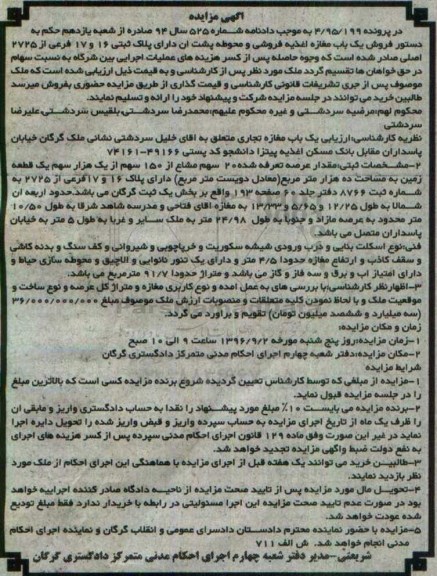 آگهی مزایده
در پرونده ۴/۹۵/۱۹۹ به موجب دادنامه شماره ۵۲۵ سال ۹۴ صادره از شعبه یازدهم حکم به
دستور فروش یک باب مغازه اغذیه فروشی و محوطه پشت آن دارای پلاک ثبتی ۱۶ و ۱۷ فرعی از ۲۷۲۵
اصلی صادر شده است که وجوه حاصله پس از کسر هزینه های عملیات اجرایی بین شرکاء به نسبت سهام
در حق خواهان ها تقسیم گردد ملک مورد نظر پس از کارشناسی و به قیمت ذیل ارزیابی شده است که ملک
موصوف پس از جری تشریفات قانونی کارشناسی و قیمت گذاری از طریق مزایده حضوری بفروش میرسد
طالبین خرید می توانند در جلسه مزایده شرکت و پیشنهاد خود را ارائه و تسلیم نمایند.
محکوم لهم:مرضیه سردشتی و غیره محکوم علیهم:محمدرضا سردشتی،بلقیس سردشتی،علیرضا
سردشتی
نظریه کارشناسی:ارزیابی یک باب مغازه تجاری متعلق به آقای خلیل سردشتی نشانی ملک گرگان خیابان
پاسداران مقابل بانک مسکن اغذیه پیتزا دانشجو کد پستی ۴۹۱۶۶-۷۴۱۶۱
۲-مشخصات ثبتی:مقدار عرصه تعرفه شده ۲۰ سهم مشاع از ۱۵۰ سهم از یک هزار سهم یک قطعه
زمین به مساحت ده هزار متر مربع(معادل دویست متر مربع) دارای پلاک ۱۶ و ۱۷فرعی از ۲۷۲۵ به
شماره ثبت ۸۷۶۶ دفتر جلد ۶۰ صفحه ۱۹۳ واقع بر بخش یک ثبت گرگان می باشد.حدود اربعه آن
شمالا به طول ۱۲/۲۵ و ۵/۶۵ و ۱۳/۳۳ به مغازه آقای فتاحی و مدرسه شاهد شرقا به طول ۱۰/۵۰
متر محدود به عرصه مازاد و جنوبا به طول ۲۴/۹۸ متر به ملک سایر و غربا به طول ۵ متر به خیابان
پاسداران متصل می باشد.
فنی:نوع اسکلت بنایی و درب ورودی شیشه سکوریت و خرپاچوبی و شیروانی و کف سنگ و بدنه کاشی
و سقف کاذب و ارتفاع مغازه حدودا ۴/۵ متر و دارای یک تنور نانوایی و آلاچیق و محوطه سازی حیاط و
دارای امتیاز آب و برق و سه فاز و گاز می باشد و متراژ حدودا ۹۱/۷ مترمربع می باشد.
۳-اظهارنظر کارشناسی:با بررسی های به عمل آمده و نوع کاربری مغازه و متراژ کل عرصه و نوع ساخت و
موقعیت ملک و با لحاظ نمودن کلیه متعلقات و منصوبات ارزش ملک موصوف مبلغ ۳۶/۰۰۰/۰۰۰/۰۰۰
(سه میلیارد و ششصد میلیون تومان) تقویم و برآورد می گردد.
زمان و مکان مزایده:
۱-زمان مزایده:روز پنج شنبه مورخه ۱۳۹۶/۹/۲ ساعت ۹ الی ۱۰ صبح
۲-مکان مزایده:دفتر شعبه چهارم اجرای احکام مدنی متمرکز دادگستری گرگان
شرایط مزایده
۱-مزایده از مبلغی که توسط کارشناس تعیین گردیده شروع برنده مزایده کسی است که بالاترین مبلغ
را در جلسه مزایده قبول نماید.
۲-برنده مزایده می بایست ۱۰٪ مبلغ مورد پیشنهاد را نقدا به حساب دادگستری واریز و مابقی آن
را ظرف یک ماه از تاریخ اجرای مزایده به حساب سپرده واریز و قبض واریز شده را تحویل دایره اجرا
نماید در غیر این صورت وفق ماده ۱۲۹ قانون اجرای احکام مدنی سپرده پس از کسر هزینه های اجرای
به نفع دولت ضبط وآگهی مزایده تجدید خواهد شد.
۳-طالبین خرید می توانند یک هفته قبل از اجرای مزایده با هماهنگی این اجرای احکام از ملک مورد
نظر بازدید نمایند.
۴-تحویل مال مورد مزایده پس از تایید صحت مزایده از ناحیه دادگاه صادر کننده اجراییه خواهد
بود در صورت عدم تایید صحت مزایده این اجرا مسئولیتی در رابطه با خریدار ندارد فقط مبلغ تودیع
شده عودت خواهد شد.
۵-مزایده با حضور نماینده محترم دادستان دادسرای عمومی و انقلاب گرگان و نماینده اجرای احکام
مدنی انجام خواهد شد. ش الف ۷۱۱
شریعتی-مدیر دفتر شعبه چهارم اجرای احکام مدنی متمرکز دادگستری گرگان